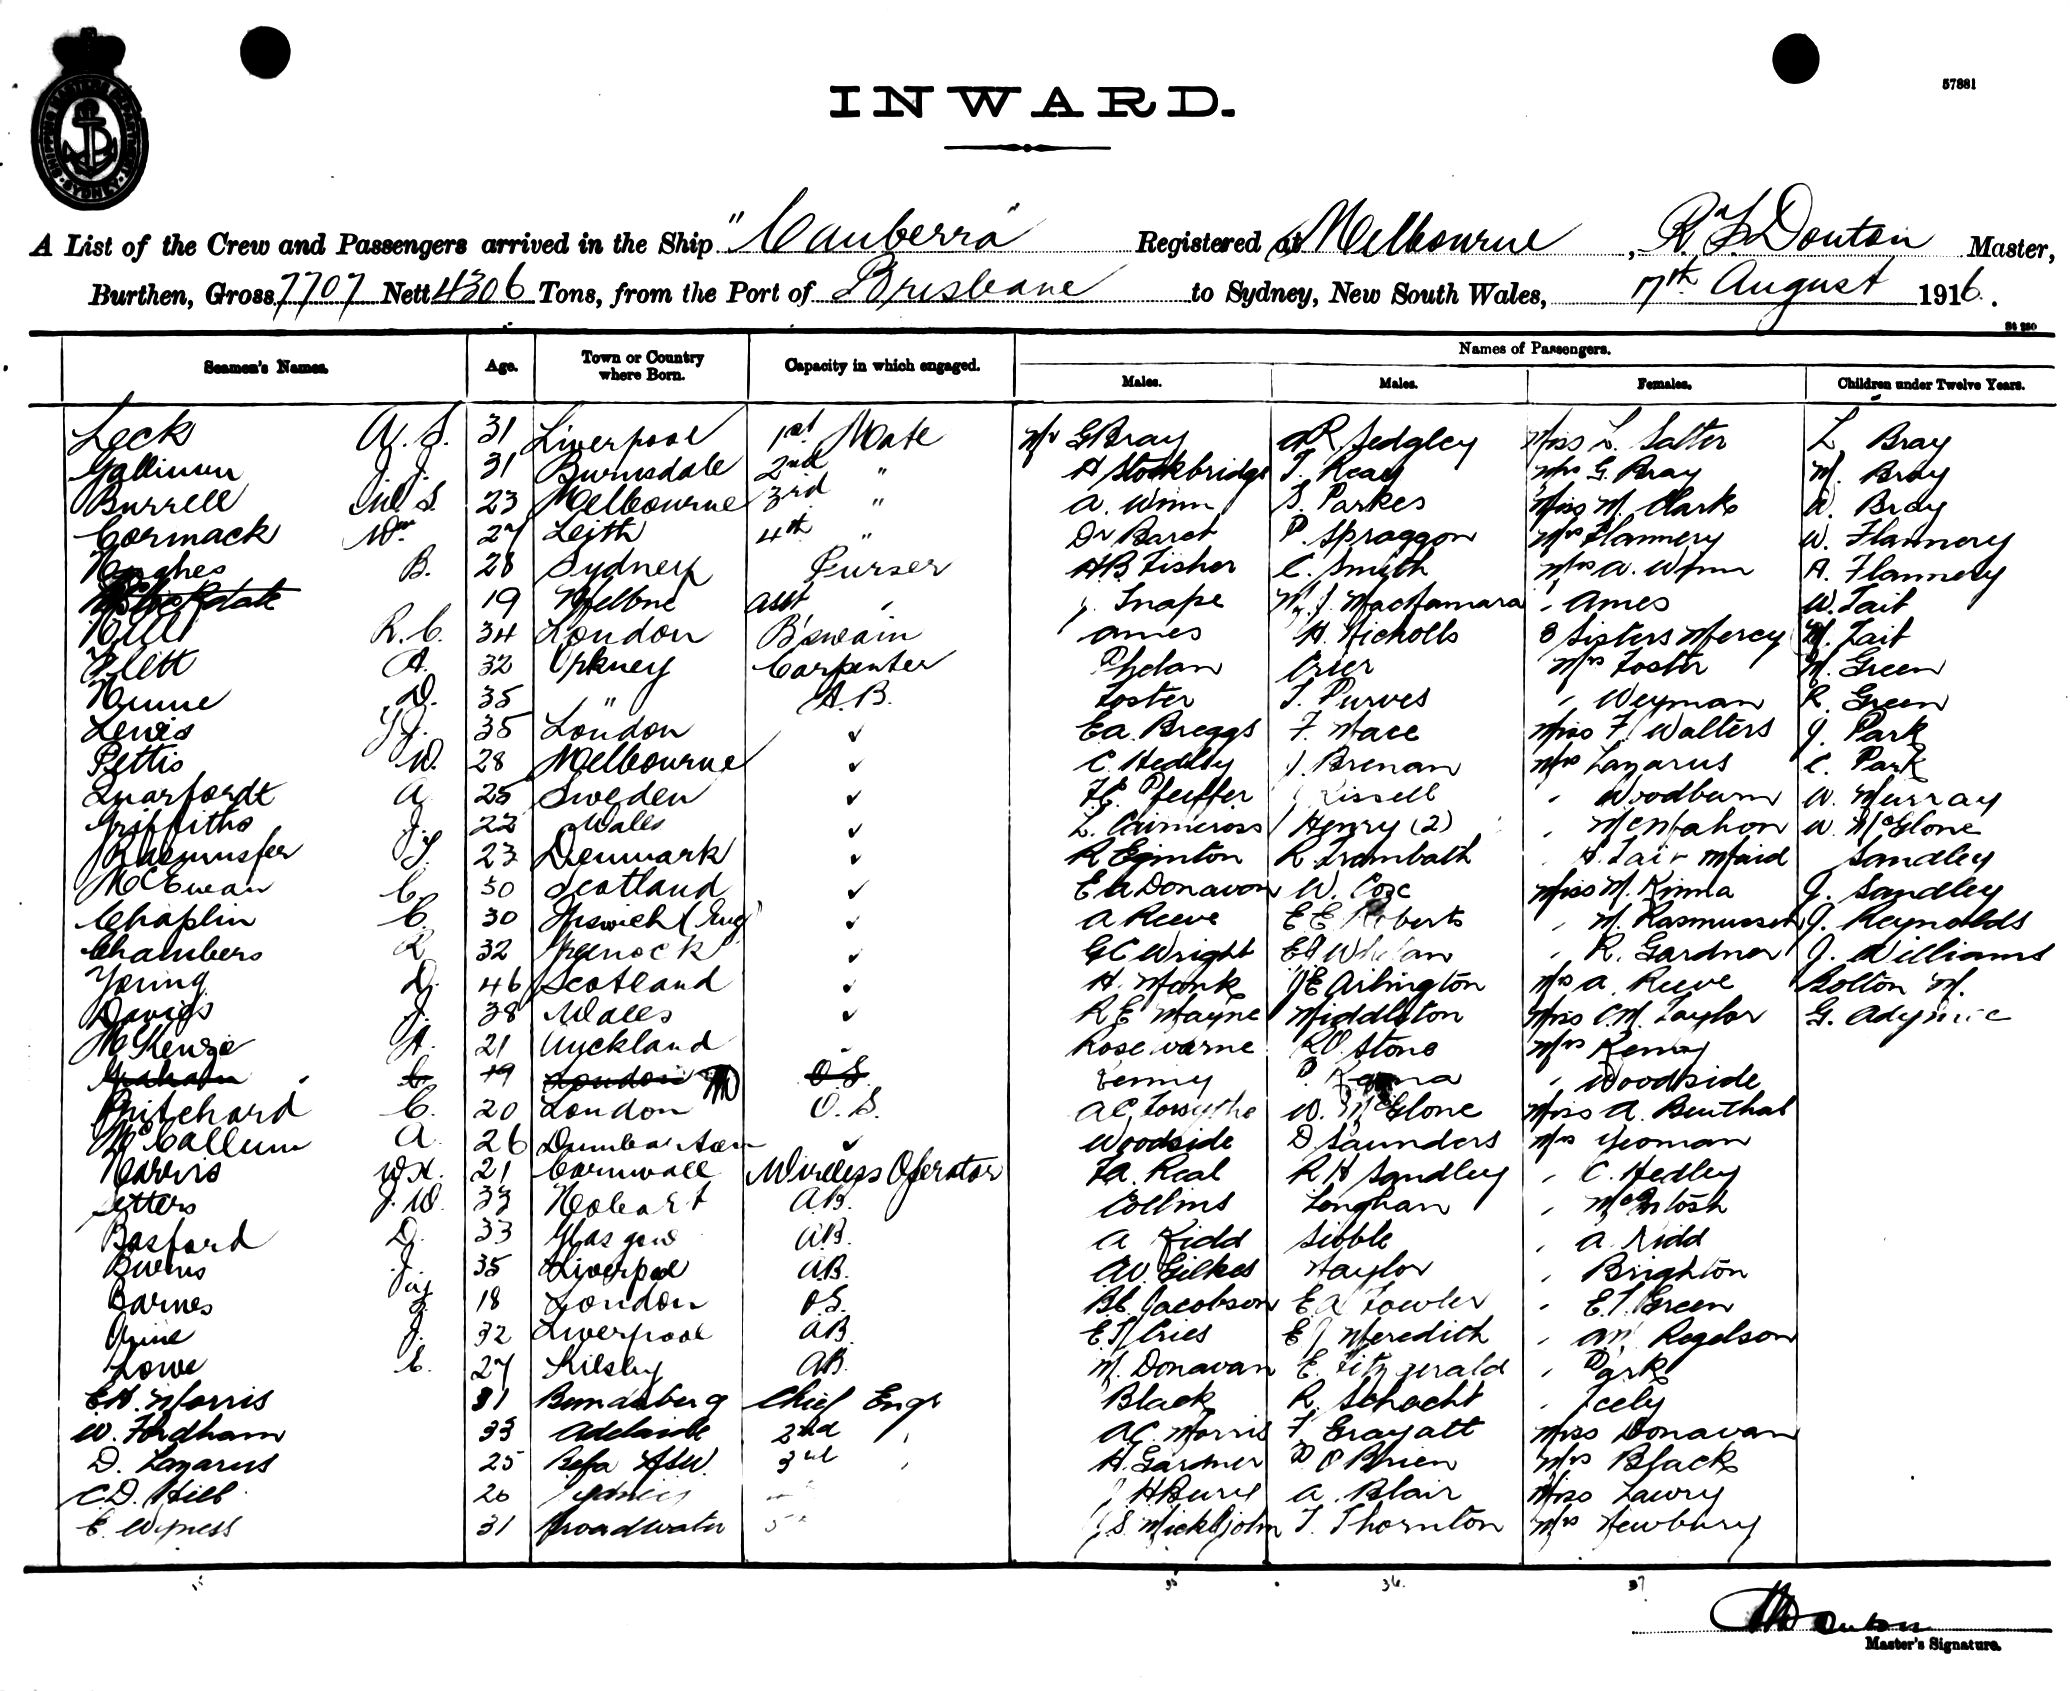 57881
INWARD.
A List of the Crew and Passengers arrived in the Ship "Canberra" Registered at Melbourne, R. Douton Master,
Burthen, Gross 7707 Nett 4306 Tons, from the Port of Brisbane to Sydney, New South Wales, 17th August 1916.
Seamen's Names. Age. Town or Country where Born. Capacity in which engaged. Names of Passengers.
Males. Males. Females. Children under Twelve Years.
Leck A. S. 31 Liverpool 1st Mate Mr G Bray Sedgley Miss L. Salter L Bray
J. J. 31 2nd " H Stockbridge Mrs G. Bray M. Bray
Burrell S. 23 Melbourne 3rd " A. Winn S. Parkes Miss M. Clarke Bray
Cormack Wm 27 Leith 4th " Dr Baret P. Spraggon Mrs Flannery W. Flannery
Hughes B. 28 Sydney Purser HB Fisher C. Smith Mrs A. Wynn A. Flannery
19 Melbne asst " Snape MacNamara " Ames W. Tait
R. C. 34 London B'swain Ames H. Nicholls 8 Sisters Mercy M. Tait
Flett A. 32 Orkney Carpenter Phelan Crier Mrs Foster M. Green
D. 35 " A.B. Foster T. Purves " Weyman R. Green
Lewis J. 35 London ✓ Ea Breggs F. Mace Miss F. Walters J. Park
Pettis W. 28 Melbourne ✓ C. Hedley J. Brenan Mrs Lazarus C. Park
Quarfordt A 25 Sweden ✓ Pfeiffer Rissell " Woodburn W. Murray
Griffiths J. 22 Wales ✓ L. Henry (2) " McMahon W. McGlone
23 Denmark ✓ R Eginton R Trambath " Maid Sandley
McEwan C 30 Scotland ✓ E A Donavon W. Miss M. Kinna J. Sandley
Chaplin C. 30 Ipswich (Eng) ✓ A Reeve E E Roberts " M. Rasmussen J. Reynolds
Chambers R 32 Greenock ✓ G C Wright Whelan " R. Gardner J. Williams
Young D. 46 Scotland ✓ H. Monk Arlington Mrs A. Reeve Bolton M.
Davies J. 38 Wales ✓ R E Mayne Middleton Miss C.M. Taylor G.
McKenzie A. 21 Auckland Rosewarne Stone Mrs Kenny
Graham C 19 London O S Kenny " Woodside
Pritchard C. 20 London O. S. A C Forsythe W. McGlone Miss A. Benthal
McCallum A. 26 Dumbarton ✓ Woodside D Saunders Mrs Yeoman
Harris 21 Cornwall Wireless Operator Real R H Sandley " C. Hedley
Setters J. W. 33 Hobart A.B. Collins Longhan " McIntosh
Basford D. 33 Glasgow A.B. A Kidd Sibble " A. Kidd
35 Liverpool A.B. Gilkes Taylor " Brighton
Barnes 18 London O.S. Jacobson E. A Fowler " E.T. Green
J. 32 Liverpool A.B. E J Meredith " Regelson
Lowe C. 27 Kilsby A.B. M. Donavan E. Fitzgerald " Park
E.H. Morris 31 Bundaberg Chief Engr Black R. Schacht " Icely
W. Fordham 33 Adelaide 2nd " A C. Morris F Miss Donavan
D. Lazarus 25 Bega NSW. 3rd " H. Gardner O'Brien Mrs Black
C.D. Hill 26 Sydney A. Blair Miss Lawry
E. Wyness 31 Broadwater 5th T. Thornton Mrs Newbury
35 36. 37
Master's Signature.